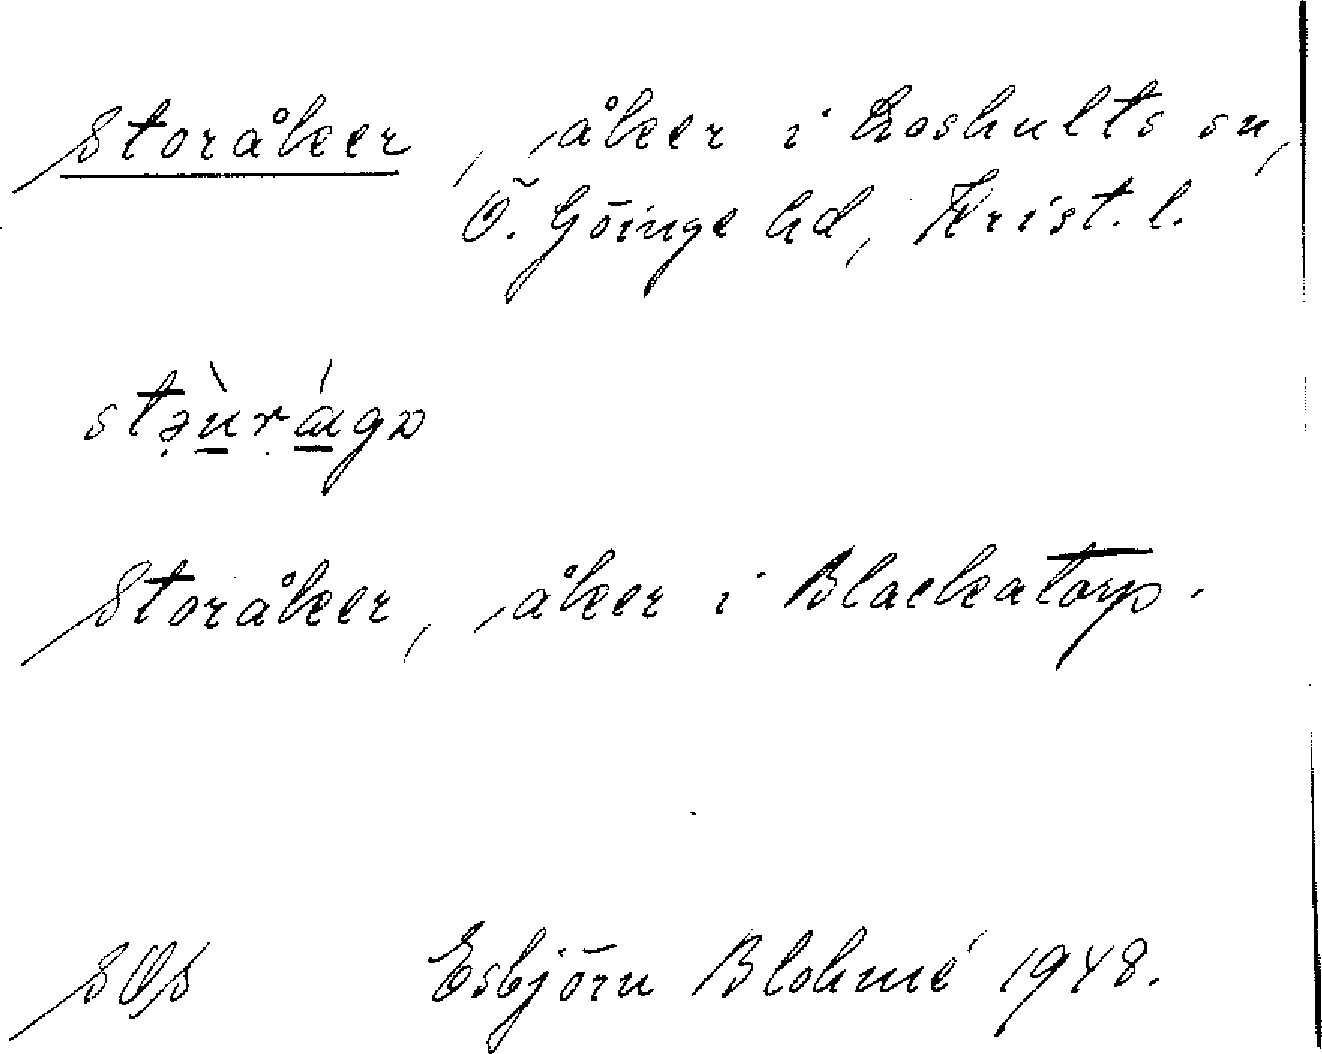 Storåker, åker i Loshults sn,
Ö. Göinge hd, Krist. l.
stə̀urágɔ
Storåker, åker i Blackatorp.
SOS Esbjörn Blohmé 1948.